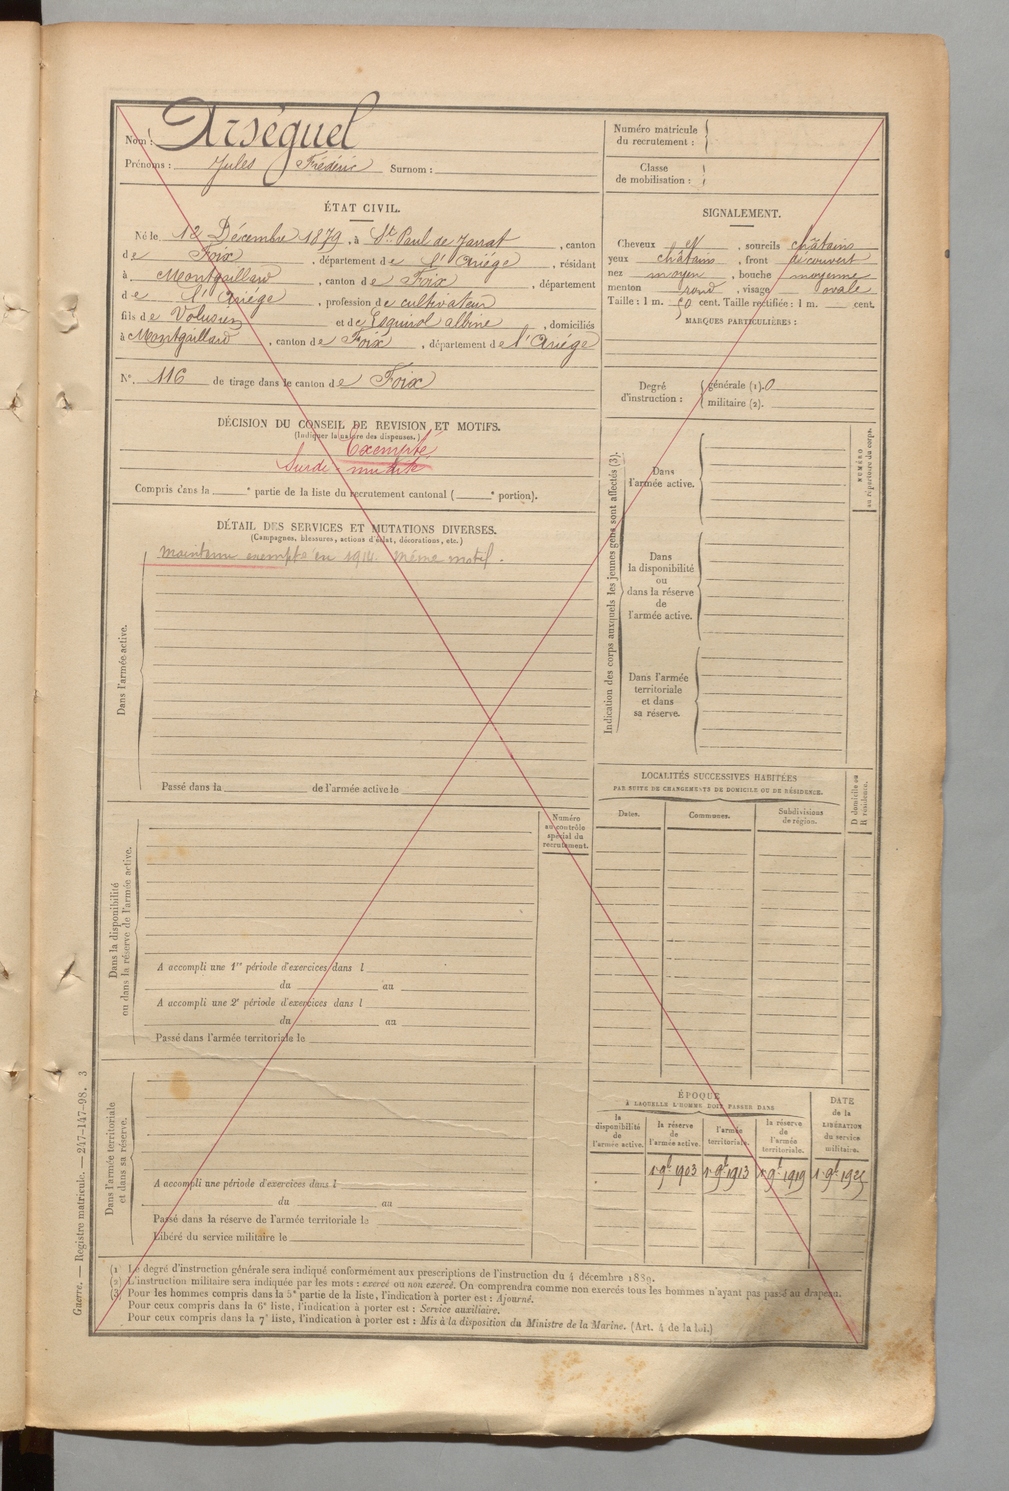 Nom : Arséguel
Prénoms : Jules Frédéric Surnom :
ÉTAT CIVIL.
Né le 12 Décembre 1879, à St Paul de Jarrat, canton
de Foix, département de l'Ariége, résidant
à Montgaillard, canton de Foix, département
de l'Ariége, profession de cultivateur
fils de Volusien et de Esquirol albine, domiciliés
à Montgaillard, canton de Foix, département de l'Ariége
N°. 116 de tirage dans le canton de Foix
DÉCISION DU CONSEIL DE REVISION ET MOTIFS.
(Indiquer la nature des dispenses.)
Exempté
Surdi-mutité
Compris dans la e partie de la liste du recrutement cantonal ( e portion).
DÉTAIL DES SERVICES ET MUTATIONS DIVERSES.
(Campagnes, blessures, actions d'éclat, décorations, etc.)
Dans l'armée active.
Maintenu exempté en 1914. Même motif.
Passé dans la de l'armée active le
Dans la disponibilité
ou dans la réserve de l'armée active.
Numéro
au contrôle
spécial du
recrutement.
A accompli une 1re période d'exercices dans l
du au
A accompli une 2e période d'exercices dans l
du au
Passé dans l'armée territoriale le
Dans l'armée territoriale
et dans sa réserve.
A accompli une période d'exercices dans l
du au
Passé dans la réserve de l'armée territoriale le
Libéré du service militaire le
Numéro matricule
du recrutement :
Classe
de mobilisation :
SIGNALEMENT.
Cheveux et, sourcils châtains
yeux châtains, front découvert
nez moyen, bouche moyenne
menton rond, visage ovale
Taille : 1 m. 50 cent. Taille rectifiée : 1 m. cent.
MARQUES PARTICULIÈRES :
Degré
d'instruction :
générale (1). 0
militaire (2).
Indication des corps auxquels les jeunes gens sont affectés (3).
NUMÉRO
au répertoire du corps.
Dans
l'armée active.
Dans
la disponibilité
ou
dans la réserve
de
l'armée active.
Dans l'armée
territoriale
et dans
sa réserve.
LOCALITÉS SUCCESSIVES HABITÉES
PAR SUITE DE CHANGEMENTS DE DOMICILE OU DE RÉSIDENCE.
Dates. Communes. Subdivisions
de région.
D domicile ou
R résidence.
ÉPOQUE
À LAQUELLE L'HOMME DOIT PASSER DANS
la
disponibilité
de
l'armée active.
la réserve
de
l'armée active.
l'armée
territoriale.
la réserve
de
l'armée
territoriale.
DATE
de la
LIBÉRATION
du service
militaire.
1r 9bre 1903 1r 9bre 1913 1r 9bre 1919 1r 9bre 1925
(1) Le degré d'instruction générale sera indiqué conformément aux prescriptions de l'instruction du 4 décembre 1889.
(2) L'instruction militaire sera indiquée par les mots : exercé ou non exercé. On comprendra comme non exercés tous les hommes n'ayant pas passé au drapeau.
(3) Pour les hommes compris dans la 5e partie de la liste, l'indication à porter est : Ajourné.
Pour ceux compris dans la 6e liste, l'indication à porter est : Service auxiliaire.
Pour ceux compris dans la 7e liste, l'indication à porter est : Mis à la disposition du Ministre de la Marine. (Art. 4 de la loi.)
Guerre. — Registre matricule. — 247-147-98. 3